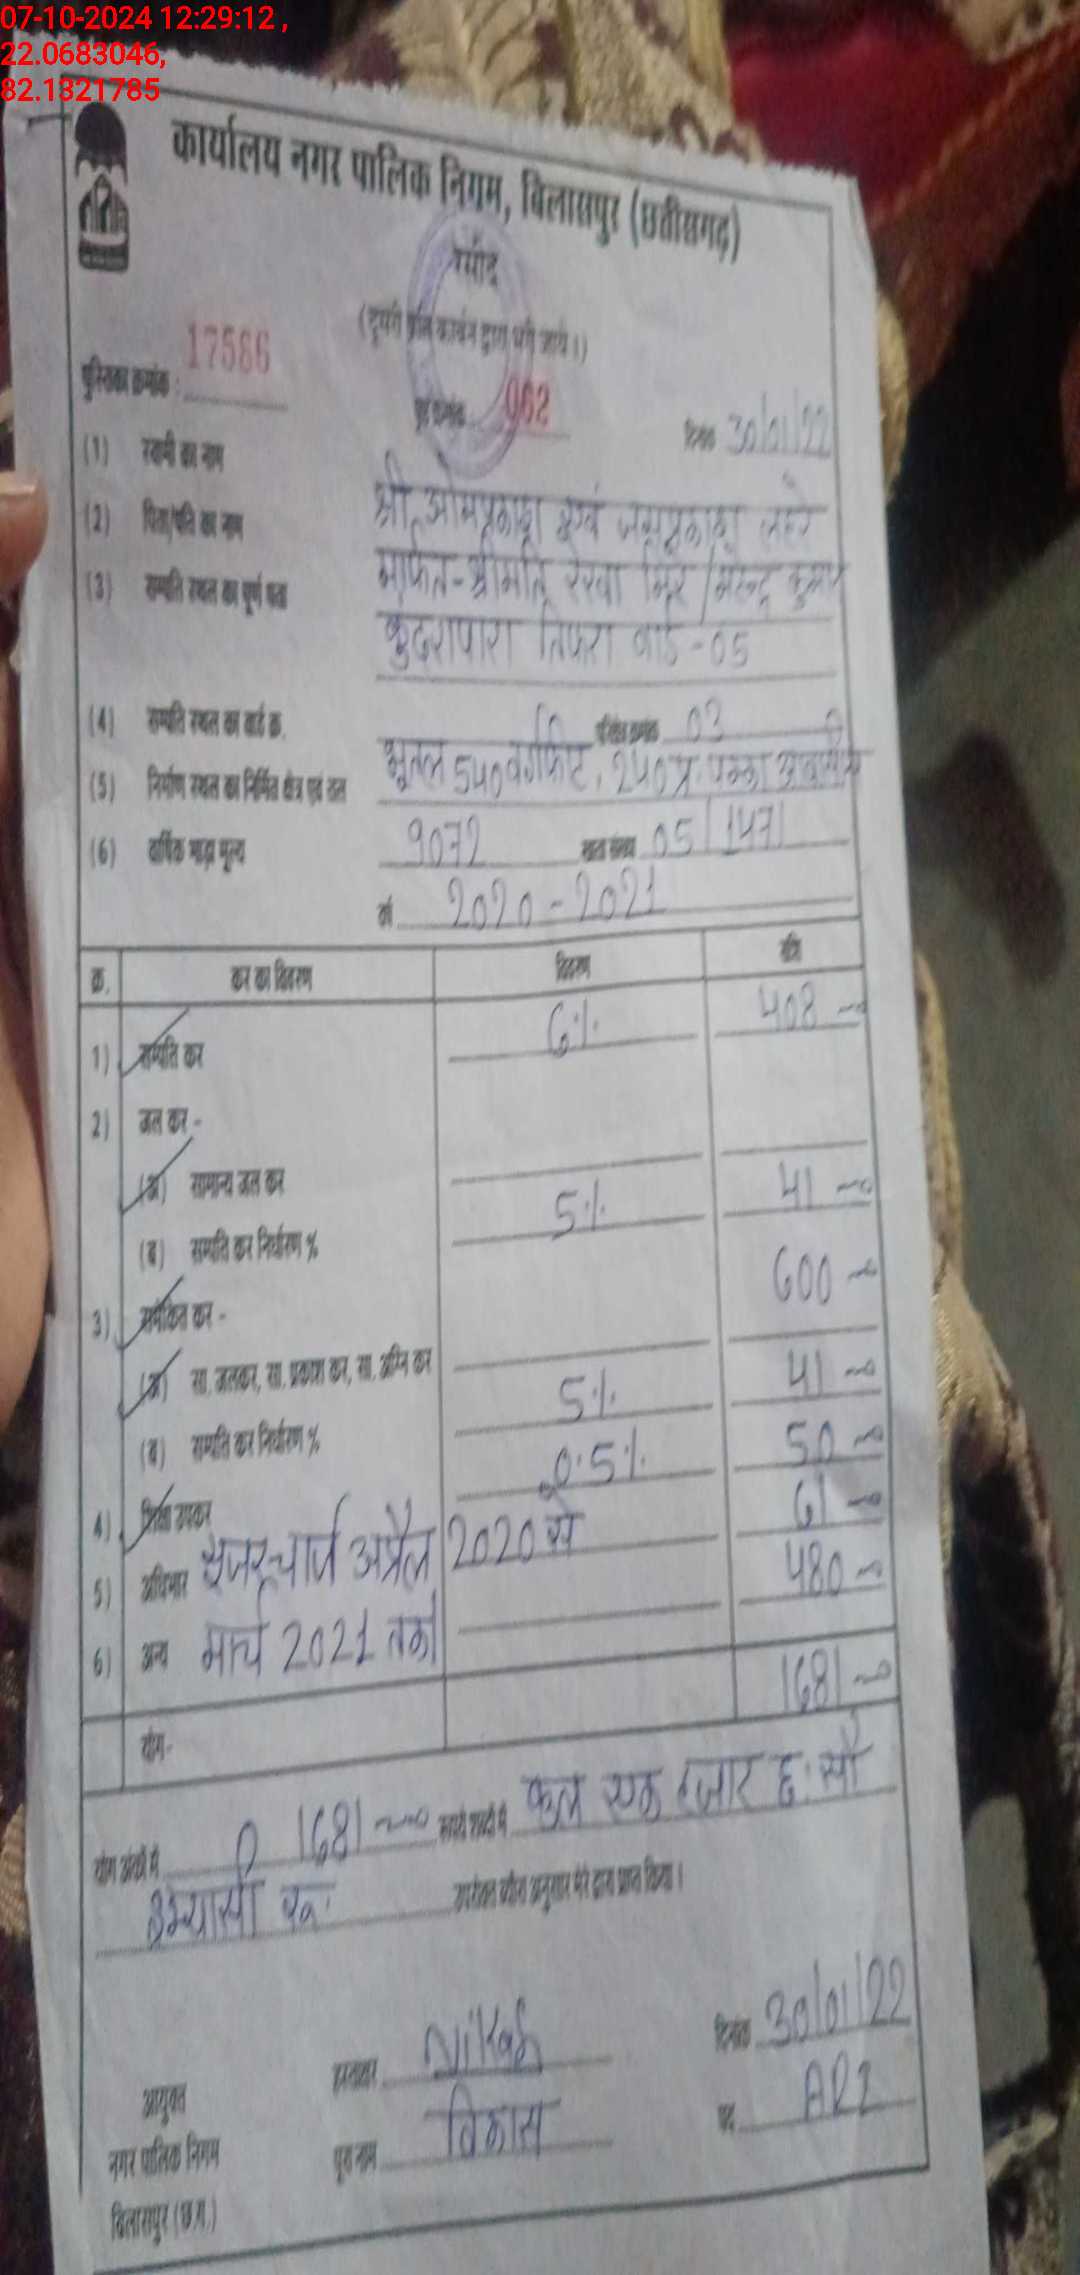 07-10-2024 12:29:12 ,
22.0683046,
82.1321785
कार्यालय नगर पालिक निगम, बिलासपुर (छत्तीसगढ़)
रसीद
(दूसरी प्रति कार्बन द्वारा भरी जाये।)
पुस्तिका क्रमांक : 17586
पृष्ठ क्रमांक 062 दिनांक 30/01/22
(1) स्वामी का नाम श्री ओमप्रकाश एवं जयप्रकाश लहरे
(2) पिता/पति का नाम मार्फत-श्रीमति रेखा गिर / नरेन्द्र कुमार
(3) सम्पति स्थल का पूर्ण पता कुदरापारा तिफरा वार्ड-05
(4) सम्पति स्थल का वार्ड क्र. परिक्षेत्र क्रमांक 03
(5) निर्माण स्थल का निर्मित क्षेत्र एवं तल भूतल 540 वर्गफिट, 240 प्र. पक्का आवासीय
(6) वार्षिक भाड़ा मूल्य 9072 खाता संख्या 05/1471
वर्ष 2020-2021
क्र. कर का विवरण विवरण राशि
1) सम्पति कर 6% 408
2) जल कर -
(अ) सामान्य जल कर
(ब) सम्पति कर निर्धारण % 5% 41
3) समेकित कर - 600
(अ) सा. जलकर, सा. प्रकाश कर, सा. अग्नि कर
(ब) सम्पति कर निर्धारण % 5% 41
4) शिक्षा उपकर 0.5% 50
5) अधिभार यूजर चार्ज अप्रैल 2020 से 61
6) अन्य मार्च 2021 तक 480
योग- 1681
योग अंकों में 1681 रूपये शब्दों में कुल एक हजार छ: सौ
इक्यासी रू. उपरोक्त ब्यौरा अनुसार मेरे द्वारा प्राप्त किया।
हस्ताक्षर Nikas दिनांक 30/01/22
आयुक्त
नगर पालिक निगम पूरा नाम विकास पद AR2
बिलासपुर (छ.ग.)